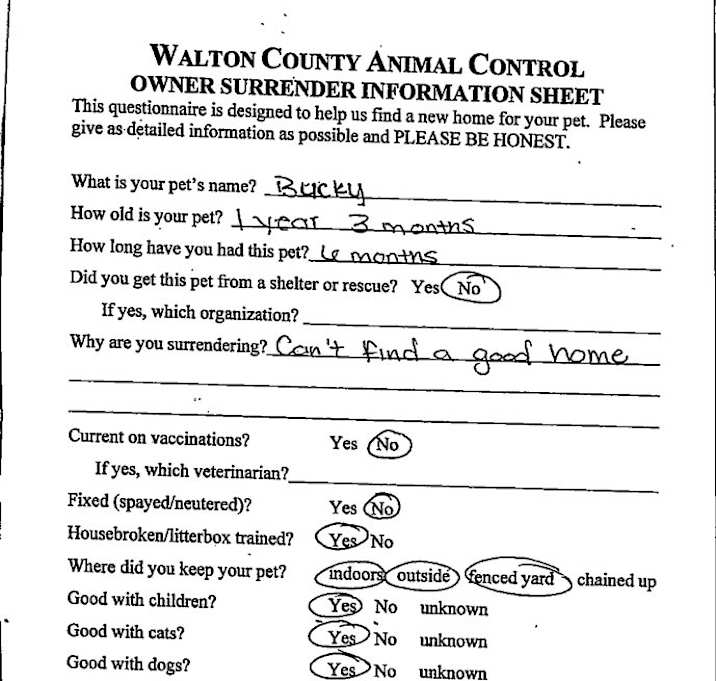 WALTON COUNTY ANIMAL CONTROL
OWNER SURRENDER INFORMATION SHEET
This questionnaire is designed to help us find a new home for your pet. Please
give as detailed information as possible and PLEASE BE HONEST.
What is your pet's name? Bucky
How old is your pet? 1 year 3 months
How long have you had this pet? 6 months
Did you get this pet from a shelter or rescue? Yes No
If yes, which organization?
Why are you surrendering? Can't find a good home
Current on vaccinations? Yes No
If yes, which veterinarian?
Fixed (spayed/neutered)? Yes No
Housebroken/litterbox trained? Yes No
Where did you keep your pet? indoors outside fenced yard chained up
Good with children? Yes No unknown
Good with cats? Yes No unknown
Good with dogs? Yes No unknown